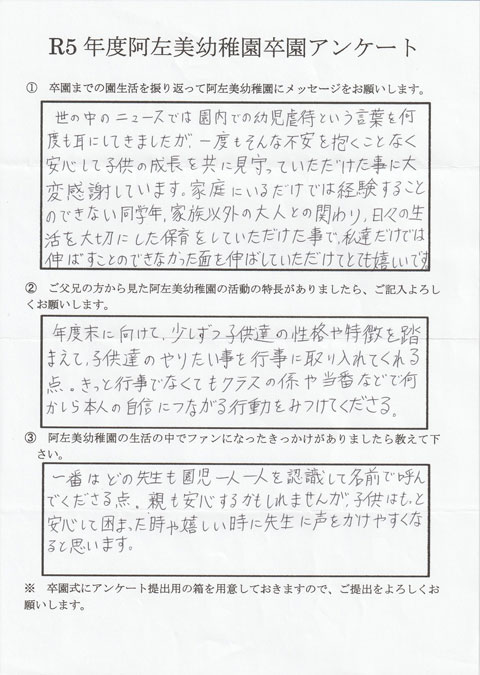 R5 年度阿左美幼稚園卒園アンケート
① 卒園までの園生活を振り返って阿左美幼稚園にメッセージをお願いします。
世の中のニュースでは園内での幼児虐待という言葉を何
度も耳にしてきましたが、一度もそんな不安を抱くことなく
安心して子供の成長を共に見守っていただけた事に大
変感謝しています。家庭にいるだけでは経験すること
のできない同学年、家族以外の大人との関わり、日々の生
活を大切にした保育をしていただけた事で、私達だけでは
伸ばすことのできなかった面を伸ばしていただけてとても嬉しいです
② ご父兄の方から見た阿左美幼稚園の活動の特長がありましたら、ご記入よろし
くお願いします。
年度末に向けて、少しずつ子供達の性格や特徴を踏
まえて、子供達のやりたい事を行事に取り入れてくれる
点。きっと行事でなくてもクラスの係や当番などで何
かしら本人の自信につながる行動をみつけてくださる。
③ 阿左美幼稚園の生活の中でファンになったきっかけがありましたら教えて下
さい。
一番はどの先生も園児一人一人を認識して名前で呼ん
でくださる点。親も安心するかもしれませんが、子供はもっと
安心して困った時や嬉しい時に先生に声をかけやすくな
ると思います。
※ 卒園式にアンケート提出用の箱を用意しておきますので、ご提出をよろしくお
願いします。